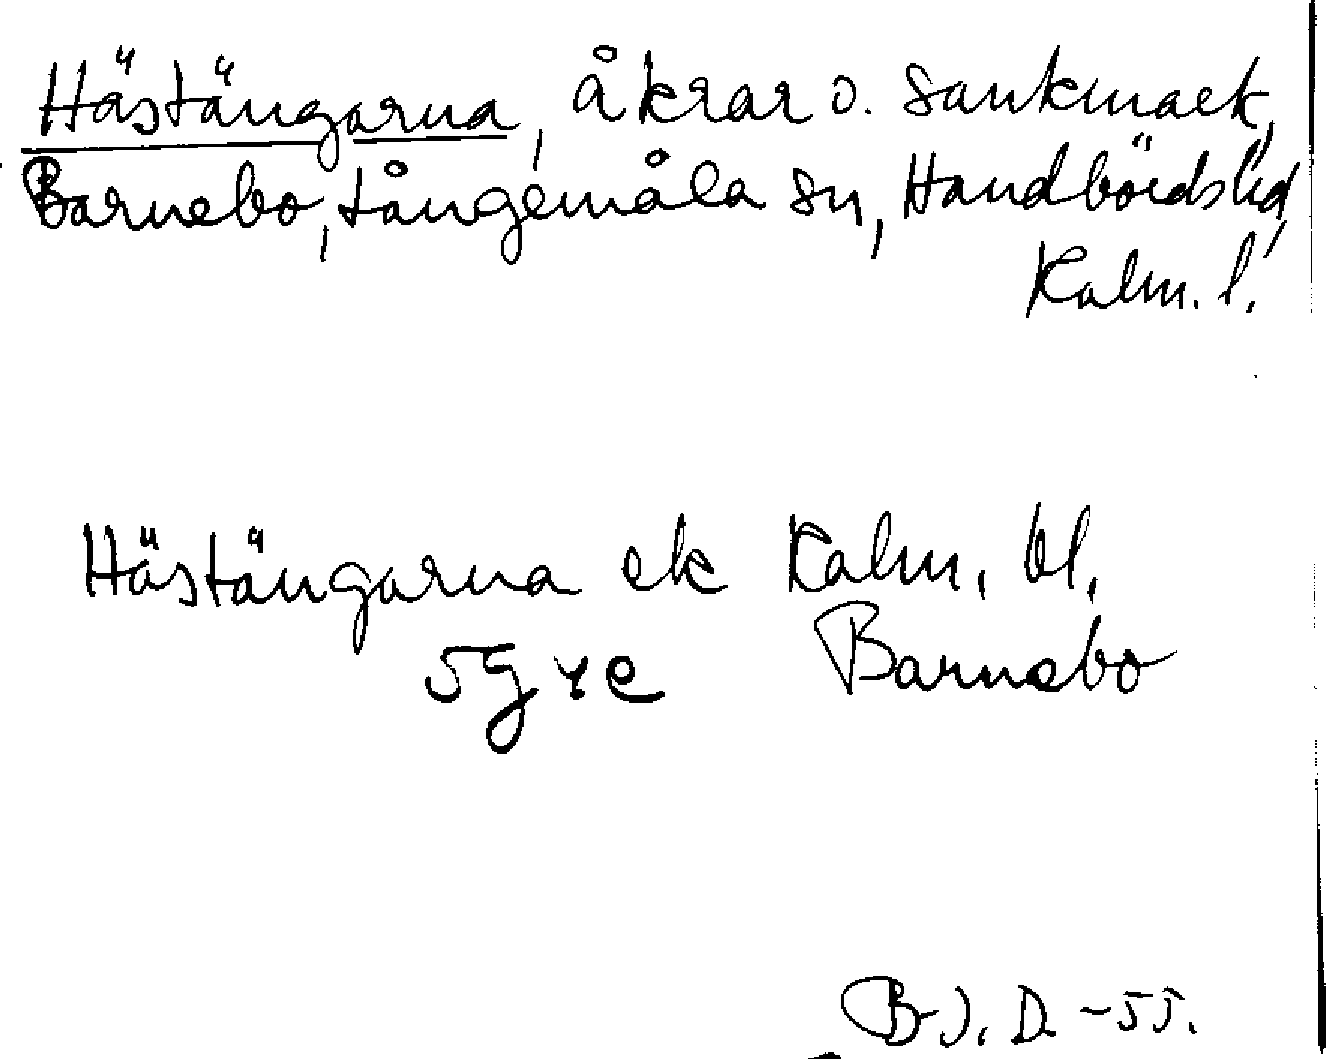 Hästängarna, åkrar o. sankmark,
Barnebo, Långemåla sn, Handbörds hd,
Kalm. l.
Hästängarna ek Kalm. bl.
5g ye Barnebo
B.J. D. -55.